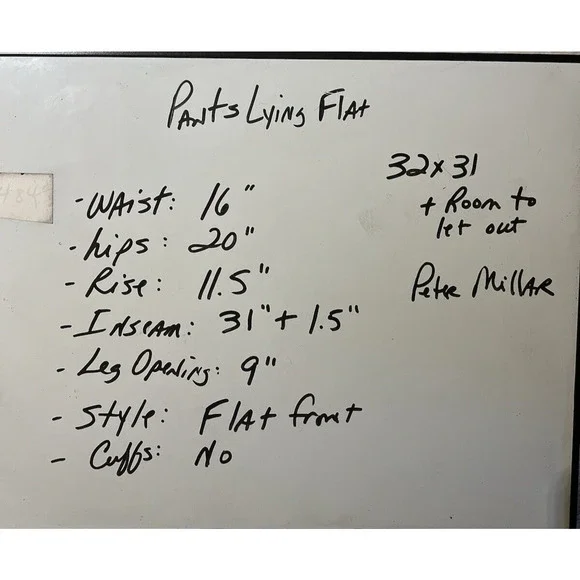 Pants Lying Flat
32x31
+ Room to
let out
Peter Millar
- Waist: 16"
- hips: 20"
- Rise: 11.5"
- Inseam: 31" + 1.5"
- Leg Opening: 9"
- Style: Flat front
- Cuffs: No